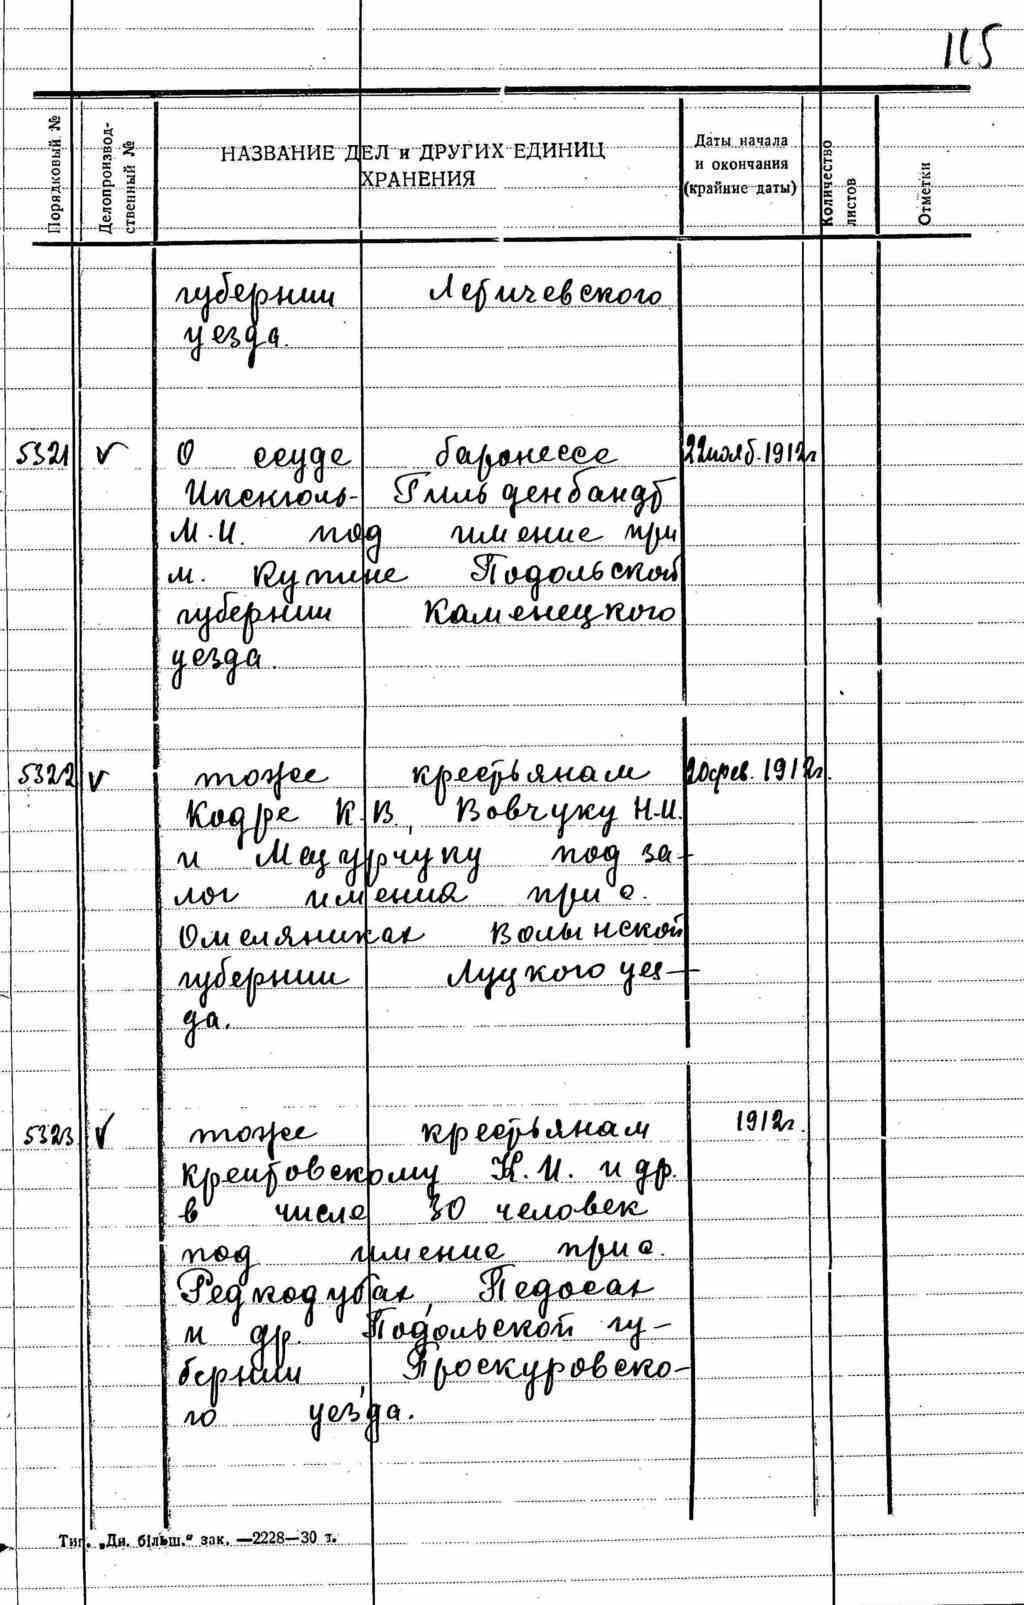 115
Порядковый №
Делопроизвод-
ственный №
НАЗВАНИЕ ДЕЛ и ДРУГИХ ЕДИНИЦ
ХРАНЕНИЯ
Даты начала
и окончания
(крайние даты)
Количество
листов
Отметки
губернии Летичевского
уезда.
5321 V О ссуде баронессе 22 нояб. 1912г
Икскюль- Гильденбандт
М.И. под имение при
м. Купине Подольской
губернии Каменецкого
уезда.
5322 V тоже крестьянам 20 фев. 1912г.
Кодре К.В., Вовчуку Н.И.
и Мазурчуку под за-
лог имения при с.
Омеляниках Волынской
губернии Луцкого уез-
да.
5323 V тоже крестьянам 1912г.
Н.И. и др.
в числе 30 человек
под имение при с.
Редкодубах, Педосах
и др. Подольской гу-
бернии, Проскуровско-
го уезда.
Тип. „Дн. більш.“ зак. —2228—30 т.